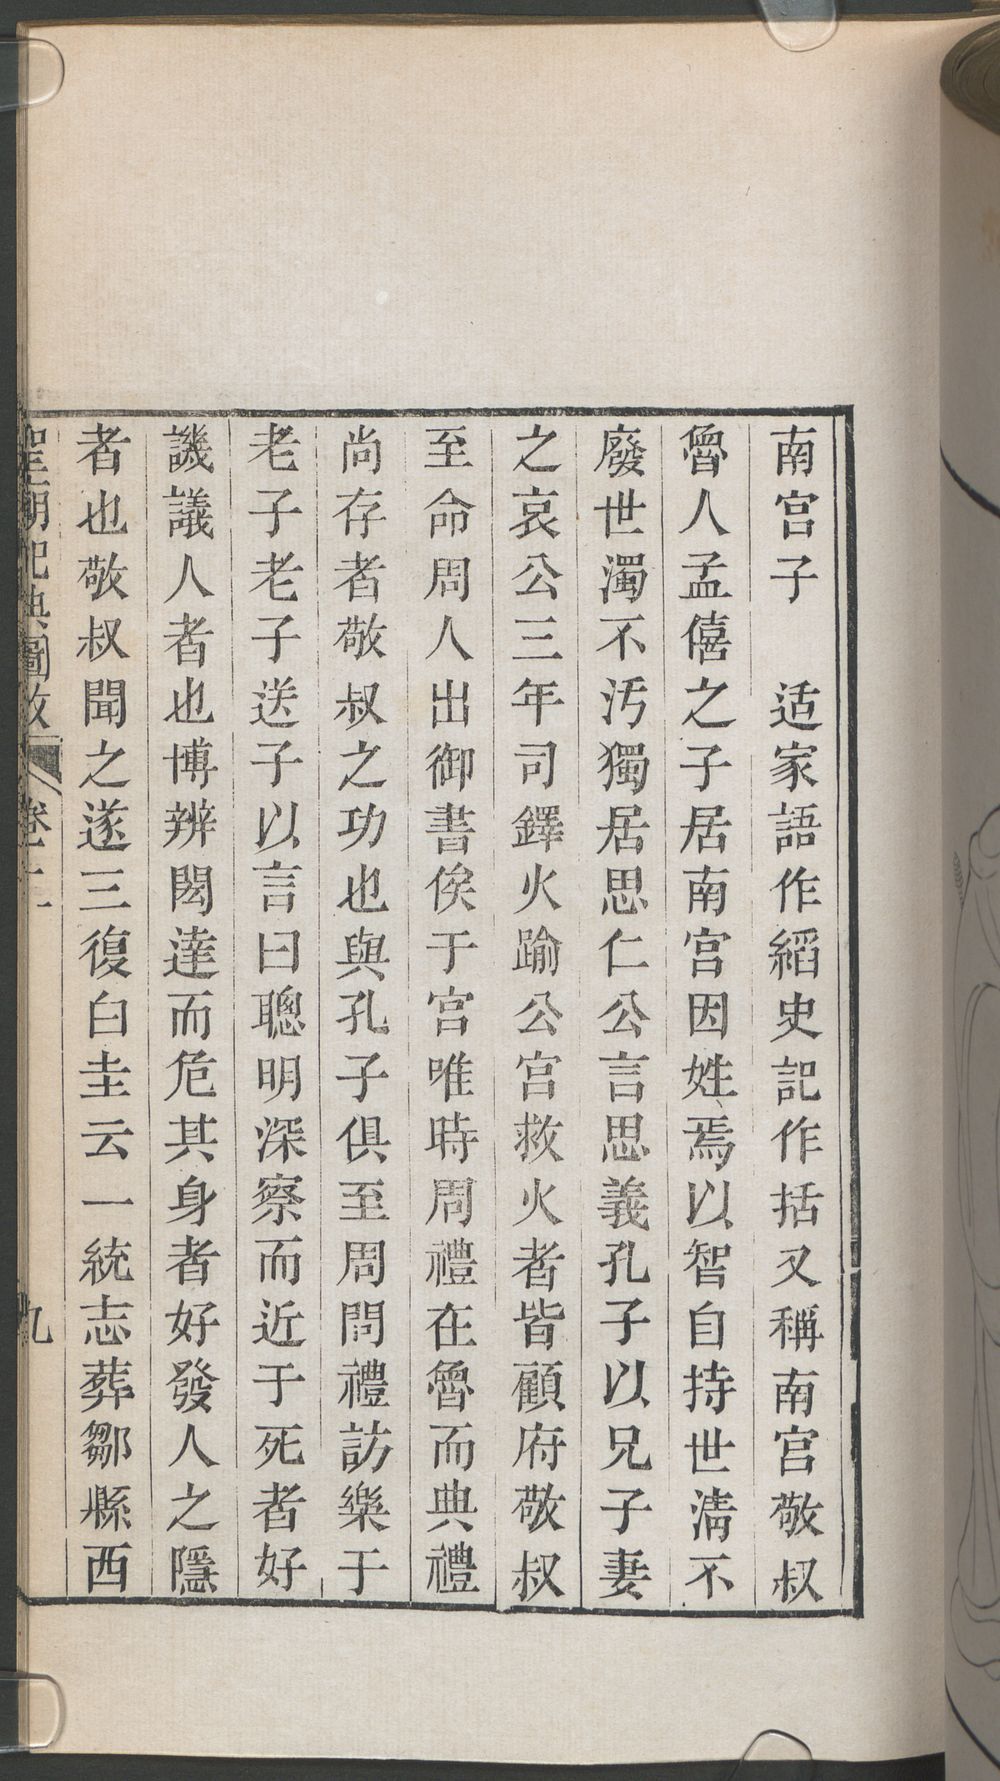 南宫子　适家語作縚史記作括又稱南宫敬叔
魯人孟僖之子居南宫因姓焉以智自持世淸不
廢世濁不汚獨居思仁公言思義孔子以兄子妻
之哀公三年司鐸火踰公宫救火者皆顧府敬叔
至命周人出御書俟于宫唯時周禮在魯而典禮
尚存者敬叔之功也與孔子俱至周問禮訪樂于
老子老子送子以言曰聰明深察而近于死者好
譏議人者也博辨閎達而危其身者好發人之隱
者也敬叔聞之遂三復白圭云一統志葬鄒縣西
聖朝祀典圖攷　卷二　九